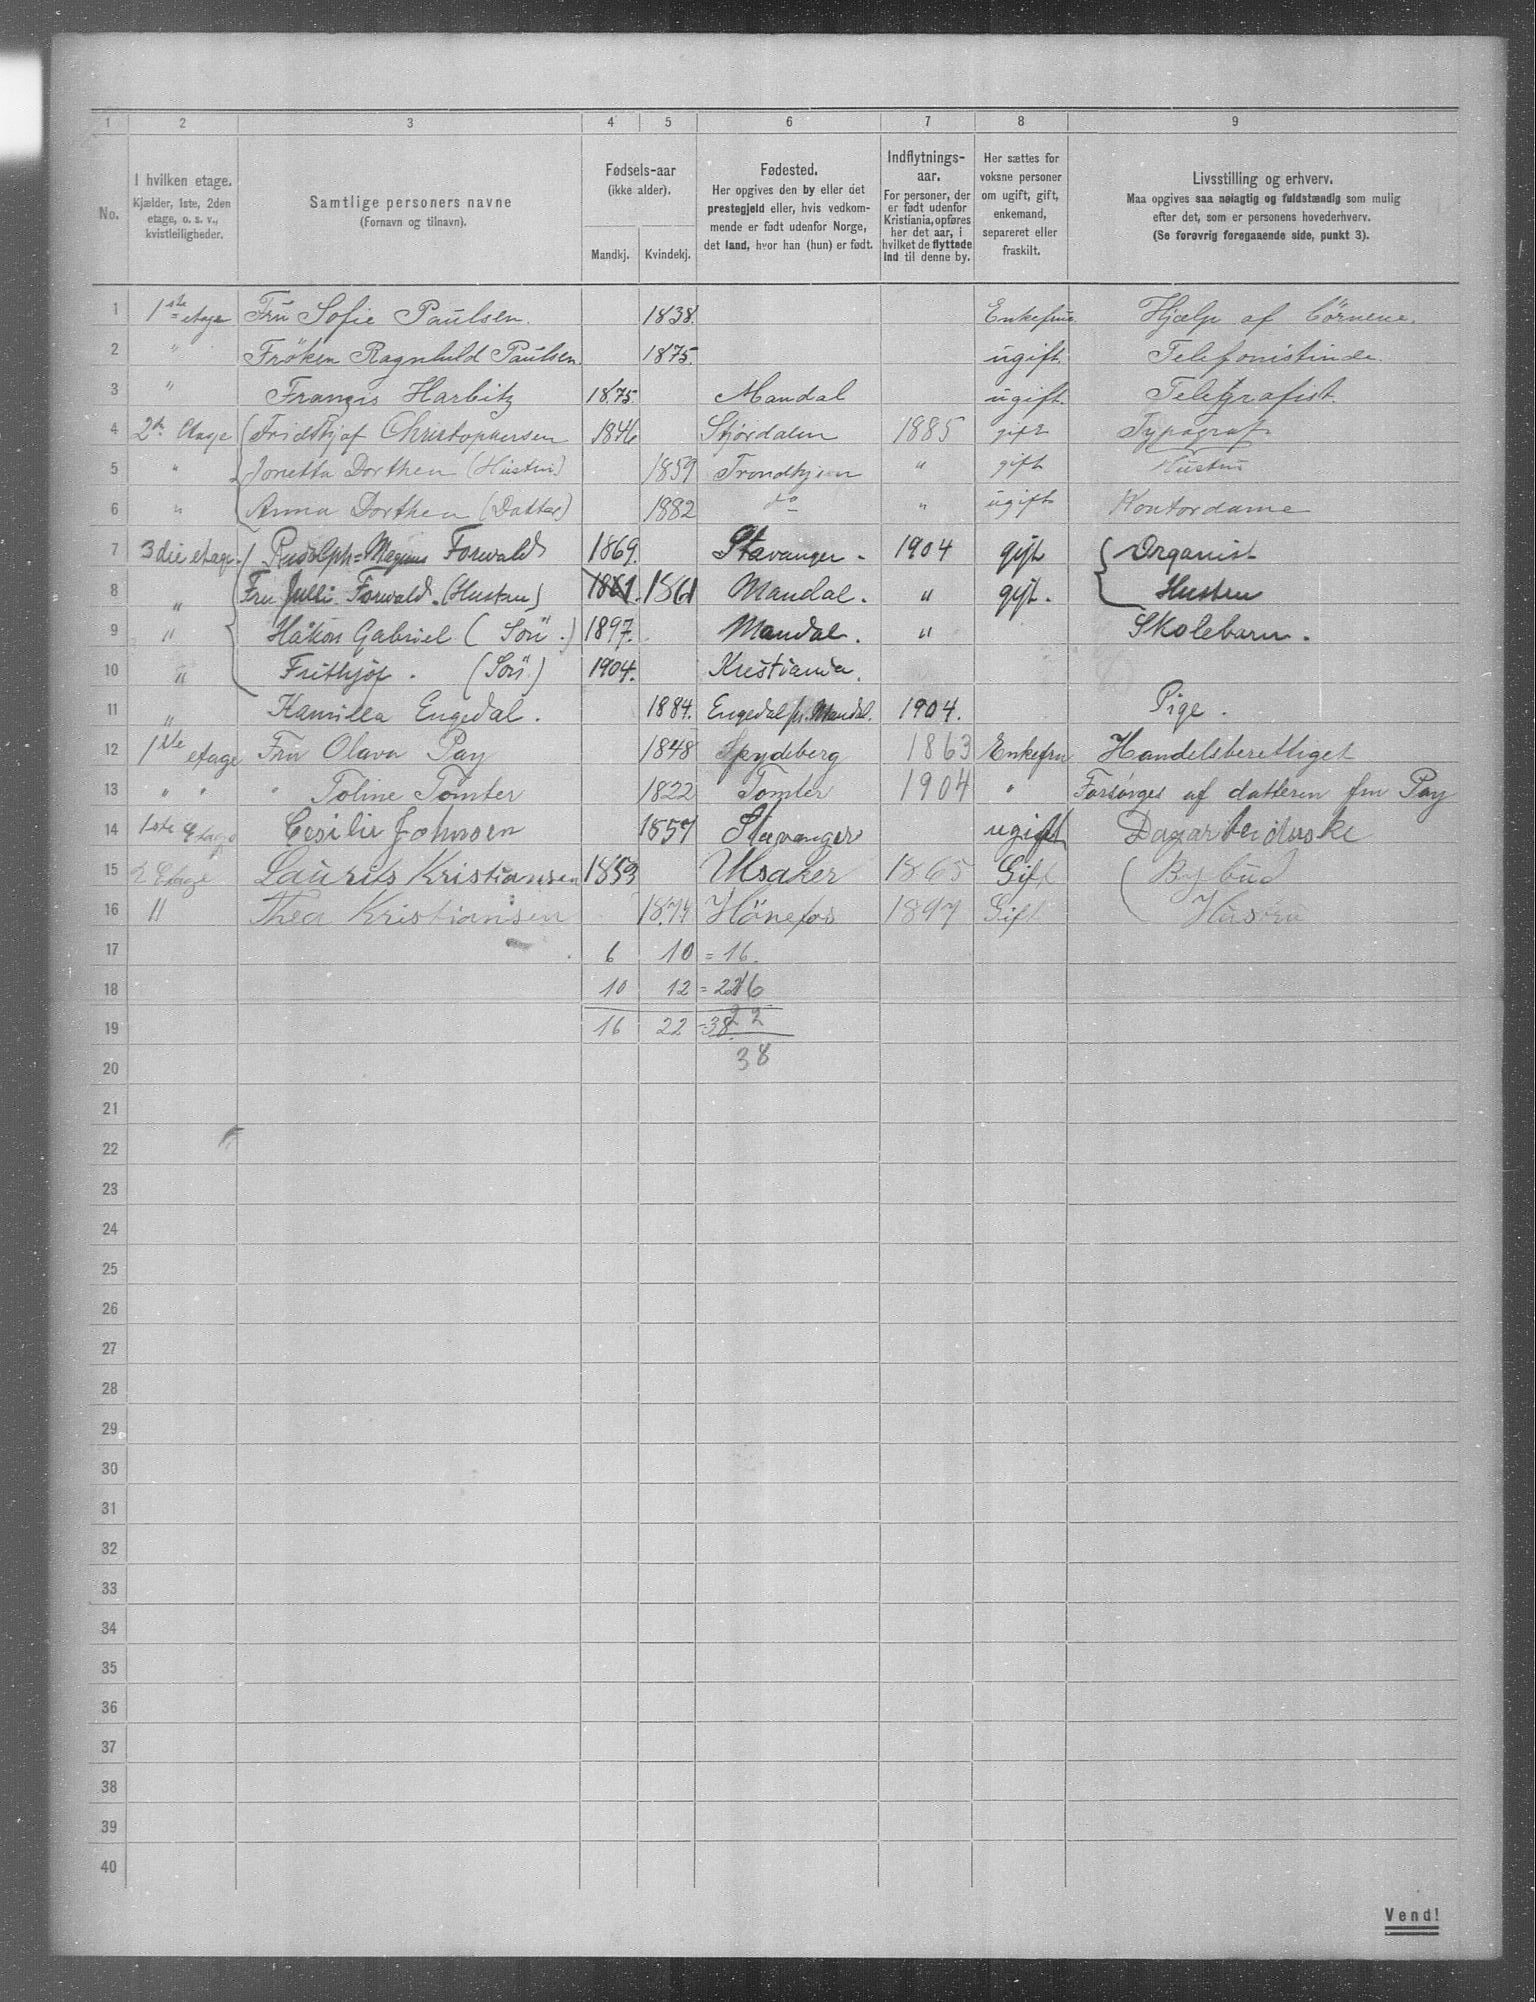 1 2 3 4 5 6 7 8 9
No.
I hvilken etage.
Kjælder, 1ste, 2den
etage, o. s. v.,
kvistleiligheder.
Samtlige personers navne
(Fornavn og tilnavn).
Fødsels-aar
(ikke alder).
Mandkj. Kvindekj.
Fødested.
Her opgives den by eller det
prestegjeld eller, hvis vedkom-
mende er født udenfor Norge,
det land, hvor han (hun) er født.
Indflytnings-
aar.
For personer, der
er født udenfor
Kristiania, opføres
her det aar, i
hvilket de flyttede
ind til denne by.
Her sættes for
voksne personer
om ugift, gift,
enkemand,
separeret eller
fraskilt.
Livsstilling og erhverv.
Maa opgives saa nøiagtig og fuldstændig som mulig
efter det, som er personens hovederhverv.
(Se forøvrig foregaaende side, punkt 3).
1 1ste etage Fru Sofie Paulsen. 1838. Enkefrue Hjælp af Börnene.
2 " Fröken Ragnhild Paulsen 1875. ugift. Telefonistinde.
3 " Francis Harbitz 1875. Mandal ugift. Telegrafist.
4 2den Etage Fridthjof Christophersen 1846 Stjørdalen 1885 gift Typograf
5 " Jonetta Dorthea (Hustru) 1859 Trondhjem " gift Hustru
6 " Anna Dorthea (Datter) 1882 do " ugift Kontordame
7 3die etage. Rudolph=Magnus Forwald 1869. Stavanger. 1904 gift Organist
8 " Fru Julli Forwald. (Hustru) 1861. 1861 Mandal. " gift. Hustru
9 " Håkon Gabriel (Sön.) 1897. Mandal. " Skolebarn.
10 " Frithjof. (Sön.) 1904. Kristiania.
11 " Kamilla Engedal. 1884. Engedal pr. Mandal. 1904. Pige.
12 1ste etage Fru Olava Pay 1848 Spydeberg 1863 Enkefru Handelsberettiget
13 " " " Toline Tomter 1822 Tomter 1904 " Forsørges af datteren fru Pay
14 1ste Etage Cesilie Johnsen 1857 Stavanger ugift Dagarbeiderske
15 2 Etage Laurits Kristiansen 1853 Ulsaker 1865 Gift Bybud
16 " Thea Kristiansen 1874 Hönefos 1897 Gift Hustru
17 6 10 = 16.
18 10 12 = 22 16
19 16 22 = 38. 22
20 38
21
22
23
24
25
26
27
28
29
30
31
32
33
34
35
36
37
38
39
40
Vend!